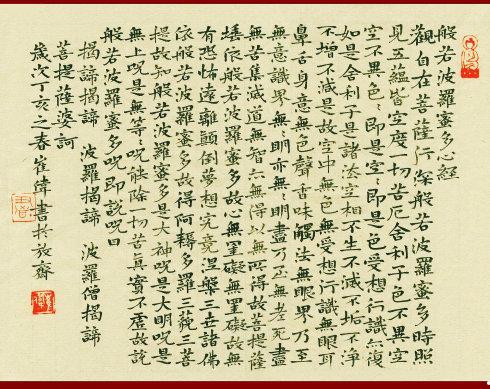 般若波羅蜜多心經
觀自在菩薩行深般若波羅蜜多時照
見五蘊皆空度一切苦厄舍利子色不異空
空不異色〻即是空〻即是色受想行識亦復
如是舍利子是諸法空相不生不滅不垢不淨
不增不減是故空中無色無受想行識無眼耳
鼻舌身意無色聲香味觸法無眼界乃至
無意識界無〻明亦無〻明盡乃至無老死盡
無苦集滅道無智亦無得以無所得故菩提薩
埵依般若波羅蜜多故心無罣礙無罣礙故無
有恐怖遠離顛倒夢想究竟涅槃三世諸佛
依般若波羅蜜多故得阿耨多羅三藐三菩
提故知般若波羅蜜多是大神呪是大明呪是
無上呪是無等〻呪能除一切苦真實不虛故說
般若波羅蜜多呪即說呪曰
揭諦揭諦 波羅揭諦 波羅僧揭諦
菩提薩婆訶
歲次丁亥之春崔偉書於放齋